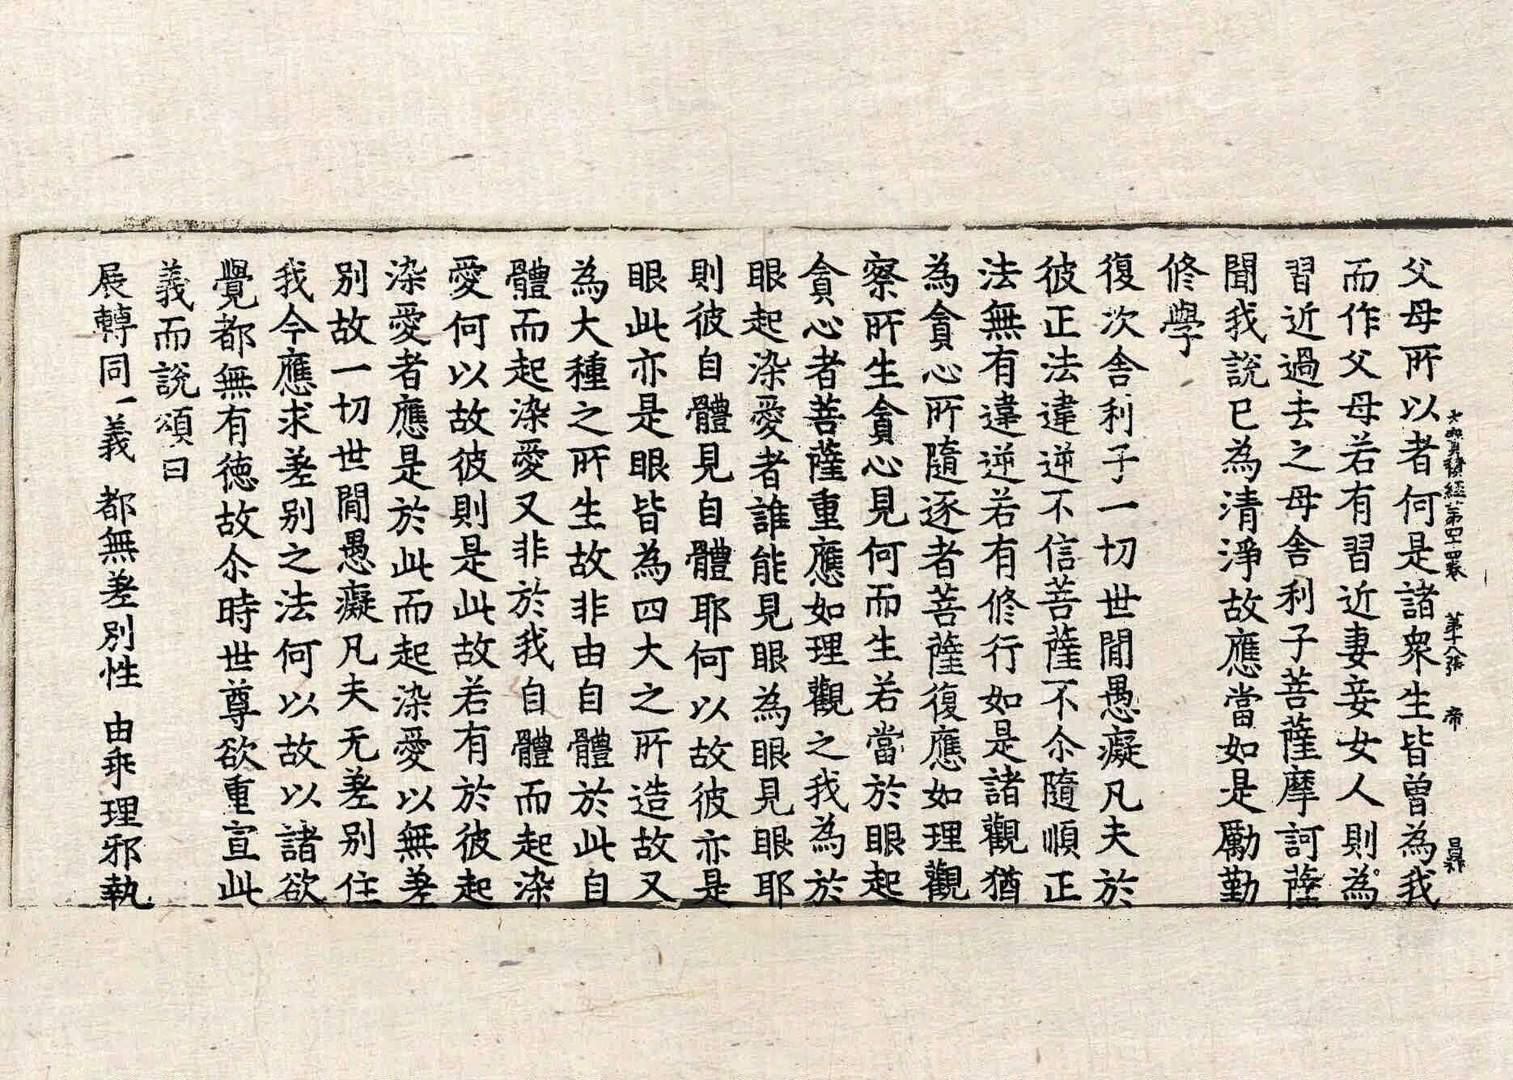 大寶積經第四四卷 第十八張 帝
父母所以者何是諸衆生皆曾為我
而作父母若有習近妻妾女人則為
習近過去之母舍利子菩薩摩訶薩
聞我說已為清淨故應當如是勵勤
修學
復次舍利子一切世間愚癡凡夫於
彼正法違逆不信菩薩不尒隨順正
法無有違逆若有修行如是諸觀猶
為貪心所隨逐者菩薩復應如理觀
察所生貪心見何而生若當於眼起
貪心者菩薩重應如理觀之我為於
眼起染愛者誰能見眼為眼見眼耶
則彼自體見自體耶何以故彼亦是
眼此亦是眼皆為四大之所造故又
為大種之所生故非由自體於此自
體而起染愛又非於我自體而起染
愛何以故彼則是此故若有於彼起
染愛者應是於此而起染愛以無差
別故一切世間愚癡凡夫无差別住
我今應求差別之法何以故以諸欲
覺都無有德故尒時世尊欲重宣此
義而說頌曰
展轉同一義 都無差別性 由乖理邪執